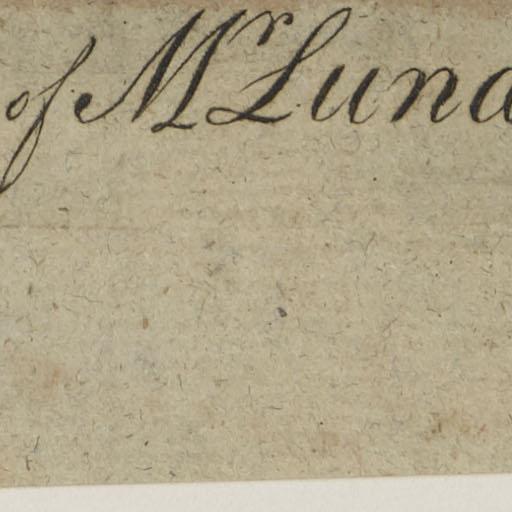 of Mr Luna